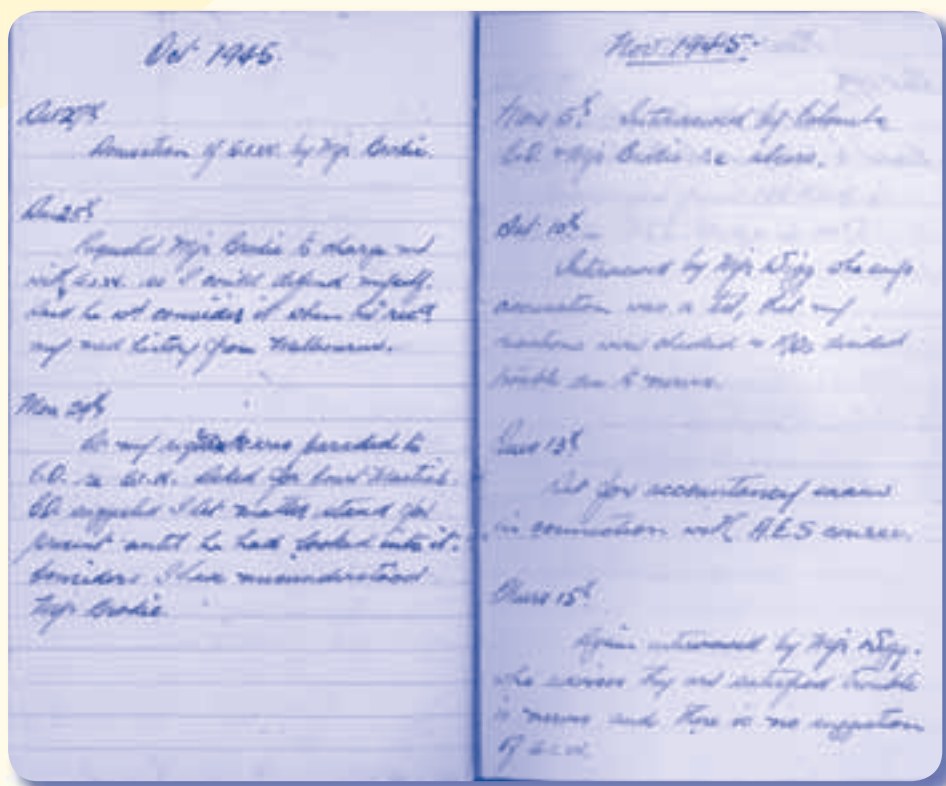 Oct 1945.
Oct 27th
Accusation of S.I.W. by Mjr Brodie.
28th
Requested Mjr Brodie to charge me
with S.I.W. so I could defend myself.
Said he'd consider it when he'd rec'd
my med history from Melbourne.
Mon 29th
At my request was paraded to
C.O. re S.I.W. Asked for Court Martial.
CO suggested I let matter stand for
present until he had looked into it.
Considers I have misunderstood
Mjr Brodie
Nov 1945.
Nov 5th Interviewed by
C.O. & Mjr Brodie re above.
10th
Interviewed by Mjr Wigg who says
accusation was a
was & decided
trouble is nerves.
Tues 13th
Sat for accountancy exam
in connection with A.E.S course.
Thurs 15th
Again interviewed by Mjr Wigg.
who advises they are satisfied trouble
is nerves and there is no suggestion
of S.I.W.